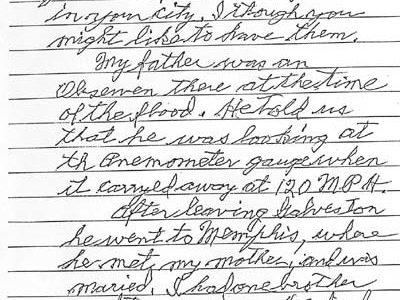 in your city. I though you
might like to have them.
My father was an
Observer there at the time
of the flood. He told us
that he was looking at
th Anemometer gauge when
it carryed away at 120 M.P.H.
After leaving Galveston
he went to Memphis, where
he met, my mother, and was
married. I had one brother